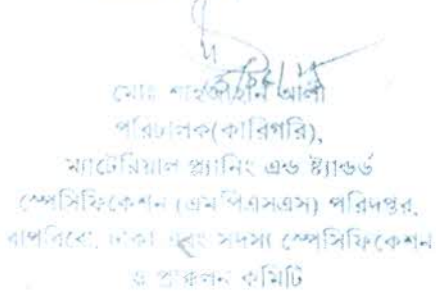 মোঃ শাহজাহান আলী
পরিচালক(কারিগরি),
ম্যাটেরিয়াল প্ল্যানিং এন্ড ষ্ট্যান্ডর্ড
স্পেসিফিকেশন (এমপিএসএস) পরিদপ্তর,
বাপবিবো, ঢাকা এবং সদস্য স্পেসিফিকেশন
ও প্রাক্কলন কমিটি